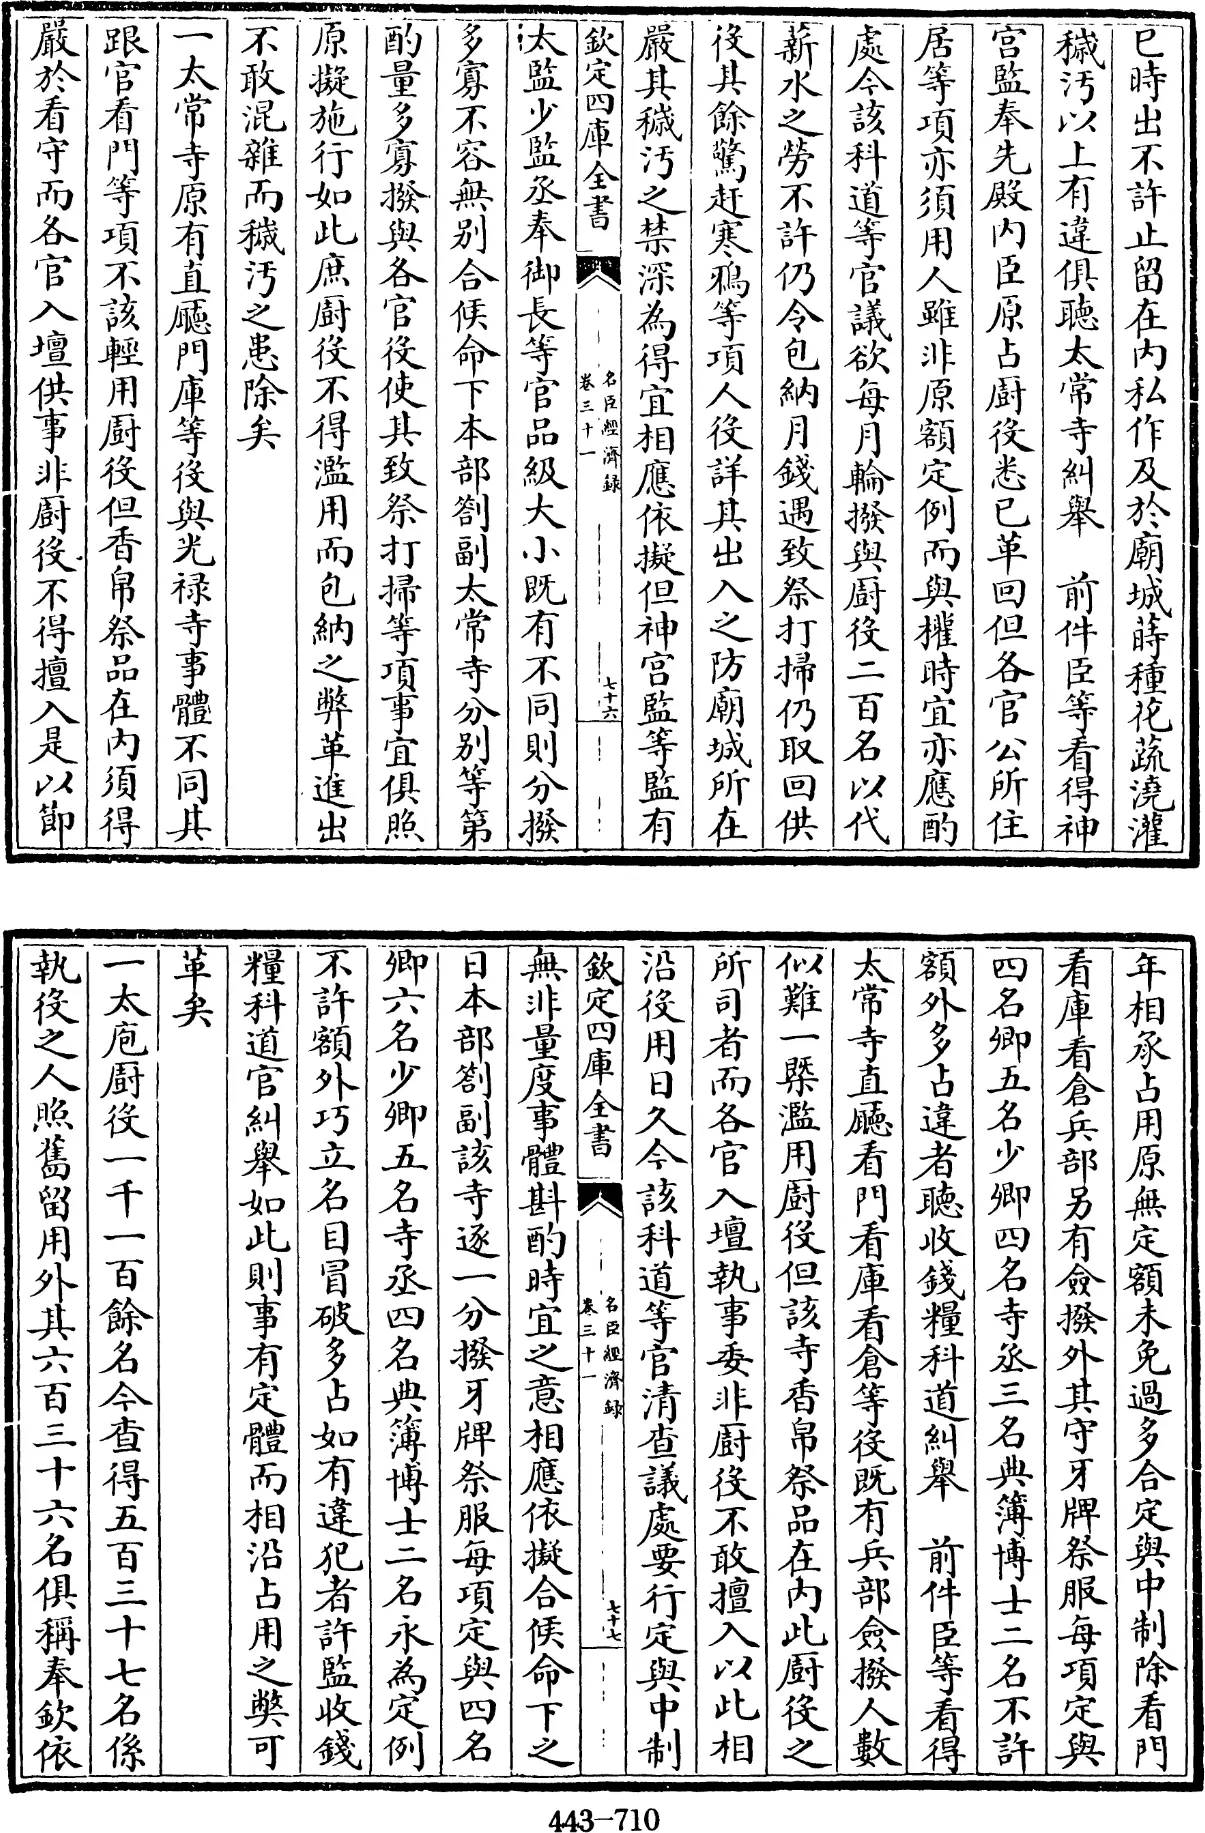 已時出不許止留在内私作及於廟城蒔種花蔬澆灌
穢汚以上有違俱聽太常寺糾舉　前件臣等看得神
宫監奉先殿内臣原占厨役悉已革回但各官公所住
居等項亦須用人雖非原額定例而與權時宜亦應酌
處今該科道等官議欲每月輪撥與厨役二百名以代
薪水之勞不許仍令包納月錢遇致祭打掃仍取回供
役其餘驚赶寒鴉等項人役詳其出入之防廟城所在
嚴其穢汚之禁深為得宜相應依擬但神宫監等監有
欽定四庫全書
名臣經濟録
卷三十一
七十六
太監少監丞奉御長等官品級大小既有不同則分撥
多寡不容無别合候命下本部劄副太常寺分别等第
酌量多寡撥與各官役使其致祭打掃等項事宜俱照
原擬施行如此庶厨役不得濫用而包納之弊革進出
不敢混雜而穢汚之患除矣
一太常寺原有直廳門庫等役與光禄寺事體不同其
跟官看門等項不該輕用厨役但香帛祭品在内須得
嚴於看守而各官入壇供事非厨役不得擅入是以節
年相承占用原無定額未免過多合定與中制除看門
看庫看倉兵部另有僉撥外其守牙牌祭服每項定與
四名卿五名少卿四名寺丞三名典簿博士二名不許
額外多占違者聽收錢糧科道糾舉　前件臣等看得
太常寺直廳看門看庫看倉等役既有兵部僉撥人數
似難一槩濫用厨役但該寺香帛祭品在内此厨役之
所司者而各官入壇執事委非厨役不敢擅入以此相
沿役用日久今該科道等官清查議處要行定與中制
欽定四庫全書
名臣經濟録
卷三十一
七十七
無非量度事體斟酌時宜之意相應依擬合候命下之
日本部劄副該寺逐一分撥牙牌祭服每項定與四名
卿六名少卿五名寺丞四名典簿博士二名永為定例
不許額外巧立名目冒破多占如有違犯者許監收錢
糧科道官糾舉如此則事有定體而相沿占用之獘可
革矣
一太庖厨役一千一百餘名今查得五百三十七名係
執役之人照舊留用外其六百三十六名俱稱奉欽依
443-710